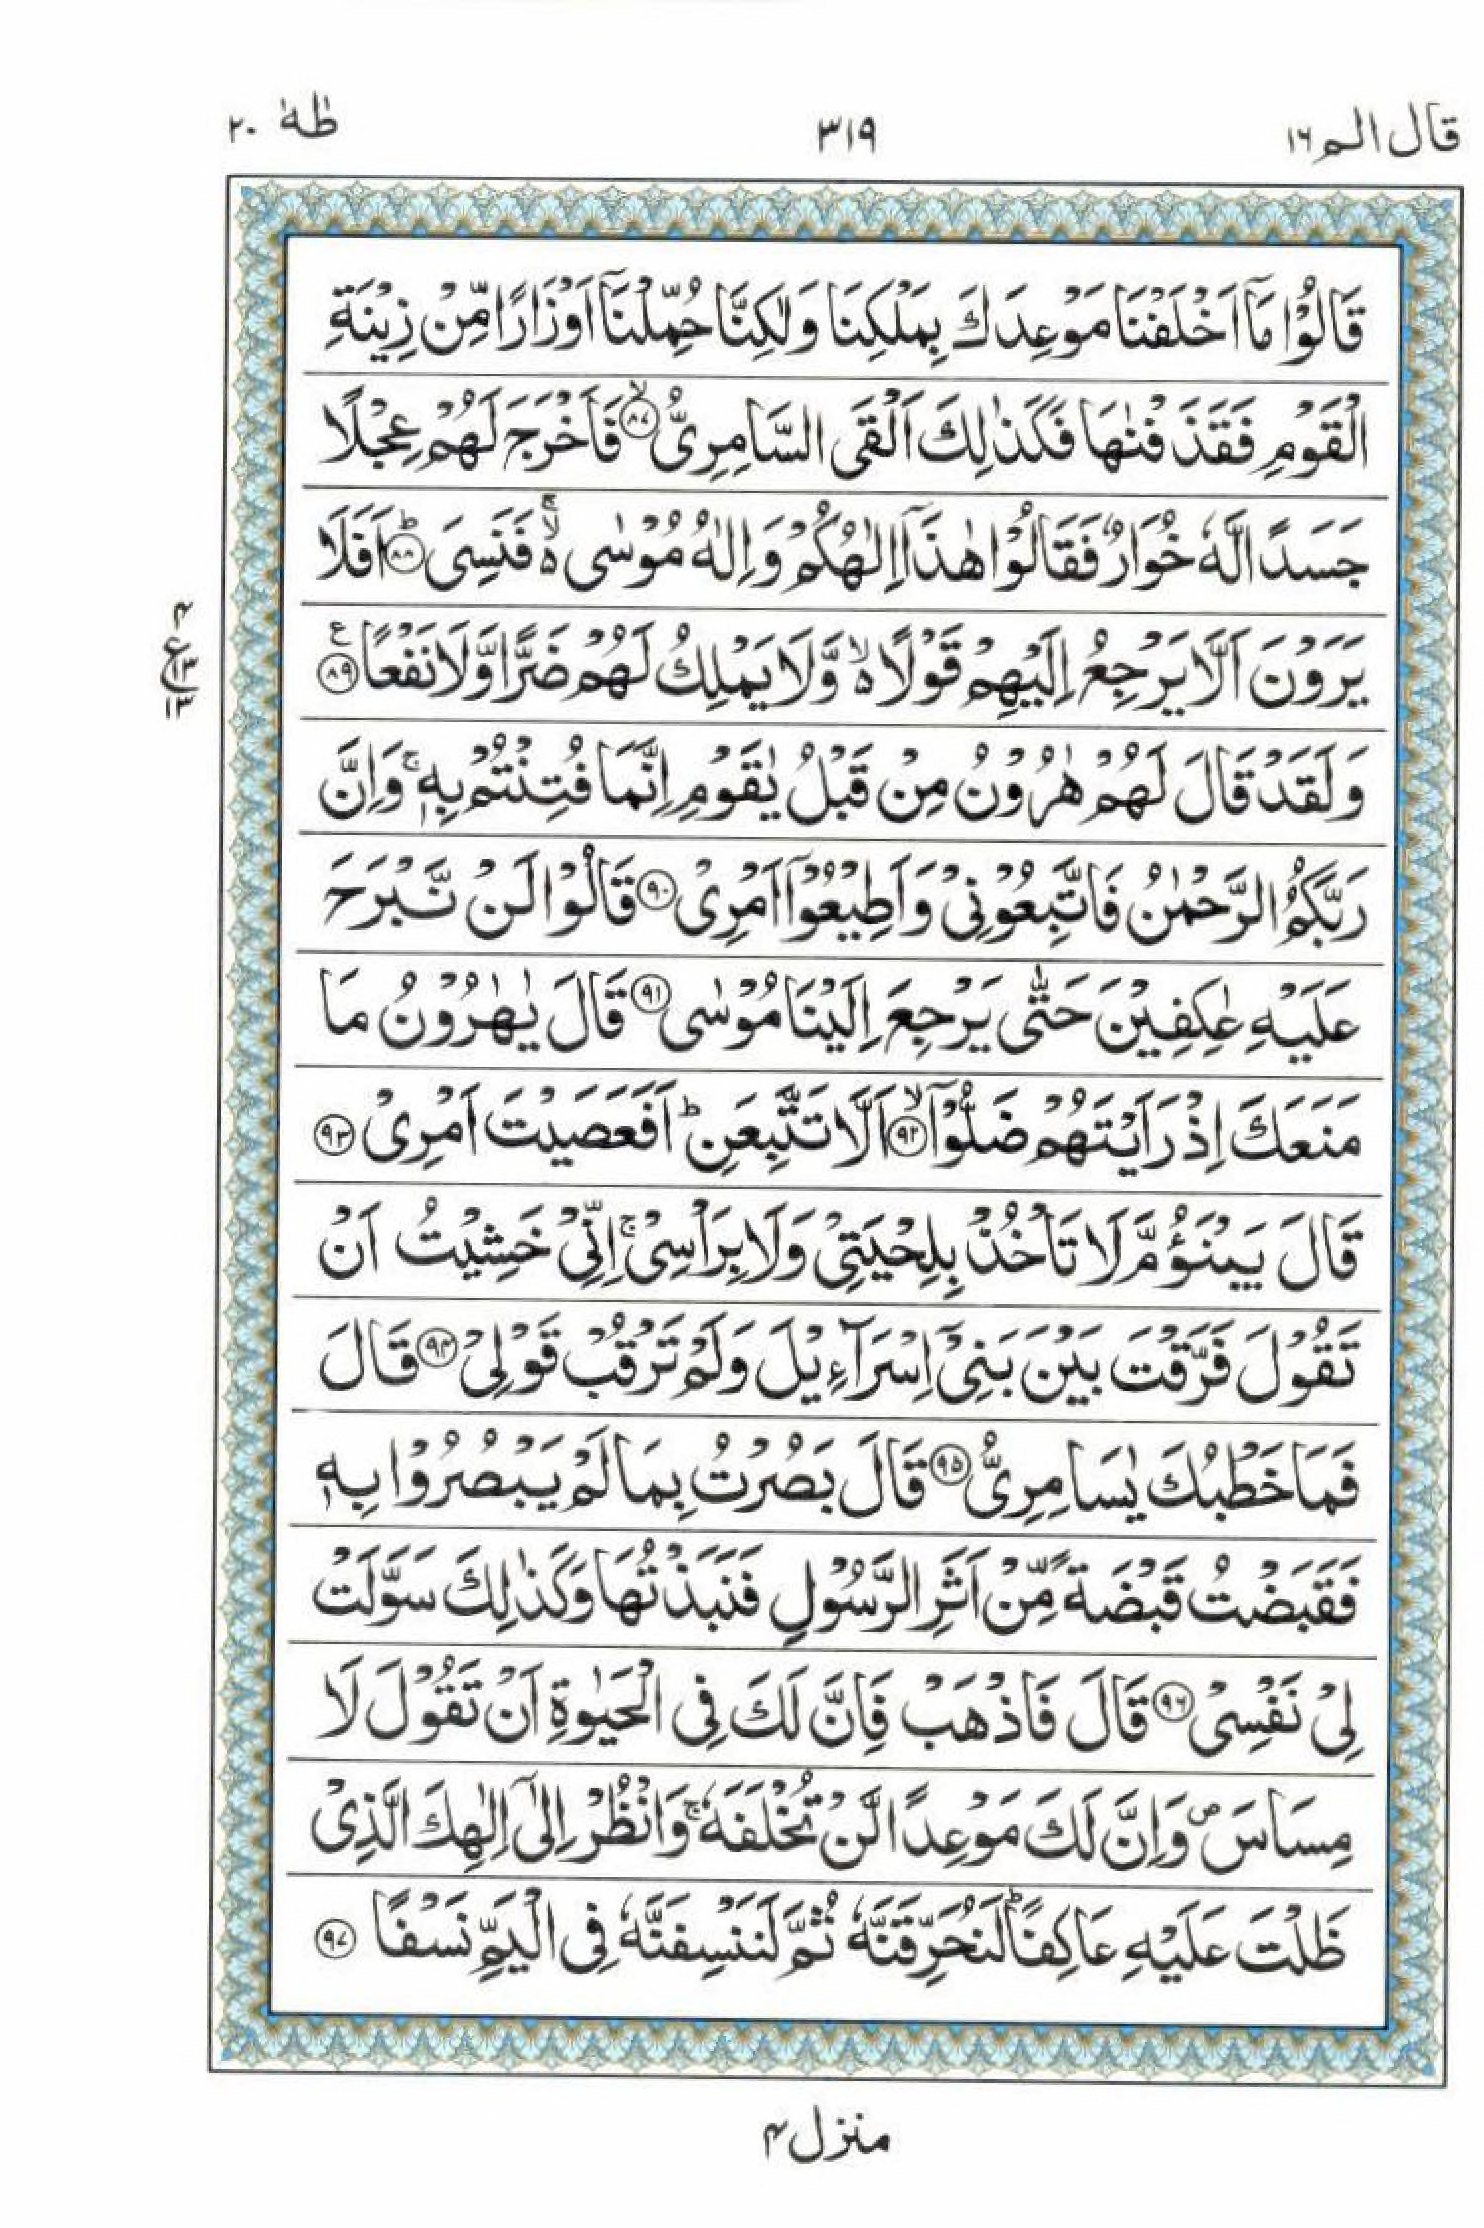 قال الم ١٦
٣١٩
طٰهٰ ٢٠
قَالُوْا مَآ اَخْلَفْنَا مَوْعِدَكَ بِمَلْكِنَا وَلٰكِنَّا حُمِّلْنَآ اَوْزَارًا مِّنْ زِيْنَةِ
الْقَوْمِ فَقَذَفْنٰهَا فَكَذٰلِكَ اَلْقَى السَّامِرِىُّ ۙ﴿٨٧﴾ فَاَخْرَجَ لَهُمْ عِجْلًا
جَسَدًا لَّهٗ خُوَارٌ فَقَالُوْا هٰذَآ اِلٰهُكُمْ وَاِلٰهُ مُوْسٰى ەۚ فَنَسِىَ ؕ﴿٨٨﴾ اَفَلَا
يَرَوْنَ اَلَّا يَرْجِعُ اِلَيْهِمْ قَوْلًا ەۙ وَّلَا يَمْلِكُ لَهُمْ ضَرًّا وَّلَا نَفْعًا ﴿٨٩﴾ ع
٤
ع ١٣
١٣
وَلَقَدْ قَالَ لَهُمْ هٰرُوْنُ مِنْ قَبْلُ يٰقَوْمِ اِنَّمَا فُتِنْتُمْ بِهٖ ۚ وَاِنَّ
رَبَّكُمُ الرَّحْمٰنُ فَاتَّبِعُوْنِىْ وَاَطِيْعُوْٓا اَمْرِىْ ﴿٩٠﴾ قَالُوْا لَنْ نَّبْرَحَ
عَلَيْهِ عٰكِفِيْنَ حَتّٰى يَرْجِعَ اِلَيْنَا مُوْسٰى ﴿٩١﴾ قَالَ يٰهٰرُوْنُ مَا
مَنَعَكَ اِذْ رَاَيْتَهُمْ ضَلُّوْٓا ۙ﴿٩٢﴾ اَلَّا تَتَّبِعَنِ ؕ اَفَعَصَيْتَ اَمْرِىْ ﴿٩٣﴾
قَالَ يَبْنَؤُمَّ لَا تَاْخُذْ بِلِحْيَتِىْ وَلَا بِرَاْسِىْ ۚ اِنِّىْ خَشِيْتُ اَنْ
تَقُوْلَ فَرَّقْتَ بَيْنَ بَنِىْٓ اِسْرَآءِيْلَ وَلَمْ تَرْقُبْ قَوْلِىْ ﴿٩٤﴾ قَالَ
فَمَا خَطْبُكَ يٰسَامِرِىُّ ﴿٩٥﴾ قَالَ بَصُرْتُ بِمَا لَمْ يَبْصُرُوْا بِهٖ
فَقَبَضْتُ قَبْضَةً مِّنْ اَثَرِ الرَّسُوْلِ فَنَبَذْتُهَا وَكَذٰلِكَ سَوَّلَتْ
لِىْ نَفْسِىْ ﴿٩٦﴾ قَالَ فَاذْهَبْ فَاِنَّ لَكَ فِى الْحَيٰوةِ اَنْ تَقُوْلَ لَا
مِسَاسَ ۖ وَاِنَّ لَكَ مَوْعِدًا لَّنْ تُخْلَفَهٗ ۚ وَانْظُرْ اِلٰٓى اِلٰهِكَ الَّذِىْ
ظَلْتَ عَلَيْهِ عَاكِفًا ؕ لَنُحَرِّقَنَّهٗ ثُمَّ لَنَنْسِفَنَّهٗ فِى الْيَمِّ نَسْفًا ﴿٩٧﴾
منزل ٤